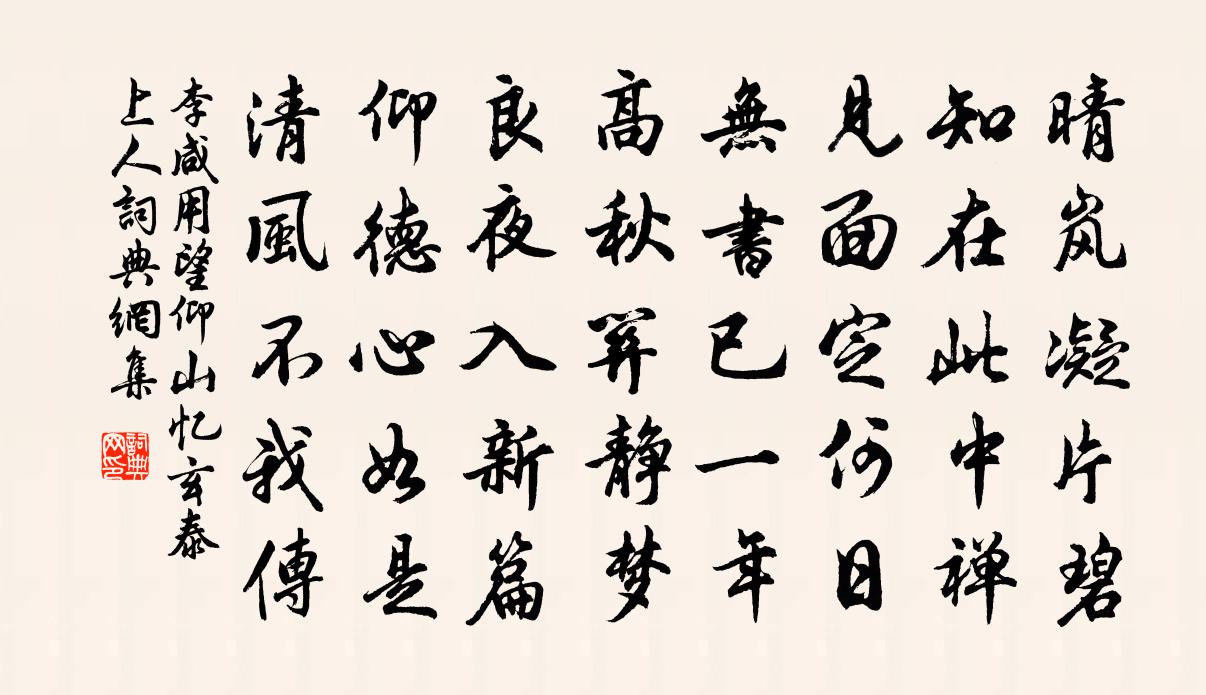 晴岚凝片碧
知在此中禅
见面定何日
無書已一年
高秋算静梦
良夜入新篇
仰德心如是
清風不我傳
李咸用望仰山忆玄泰
上人詞典網集
詞典网印